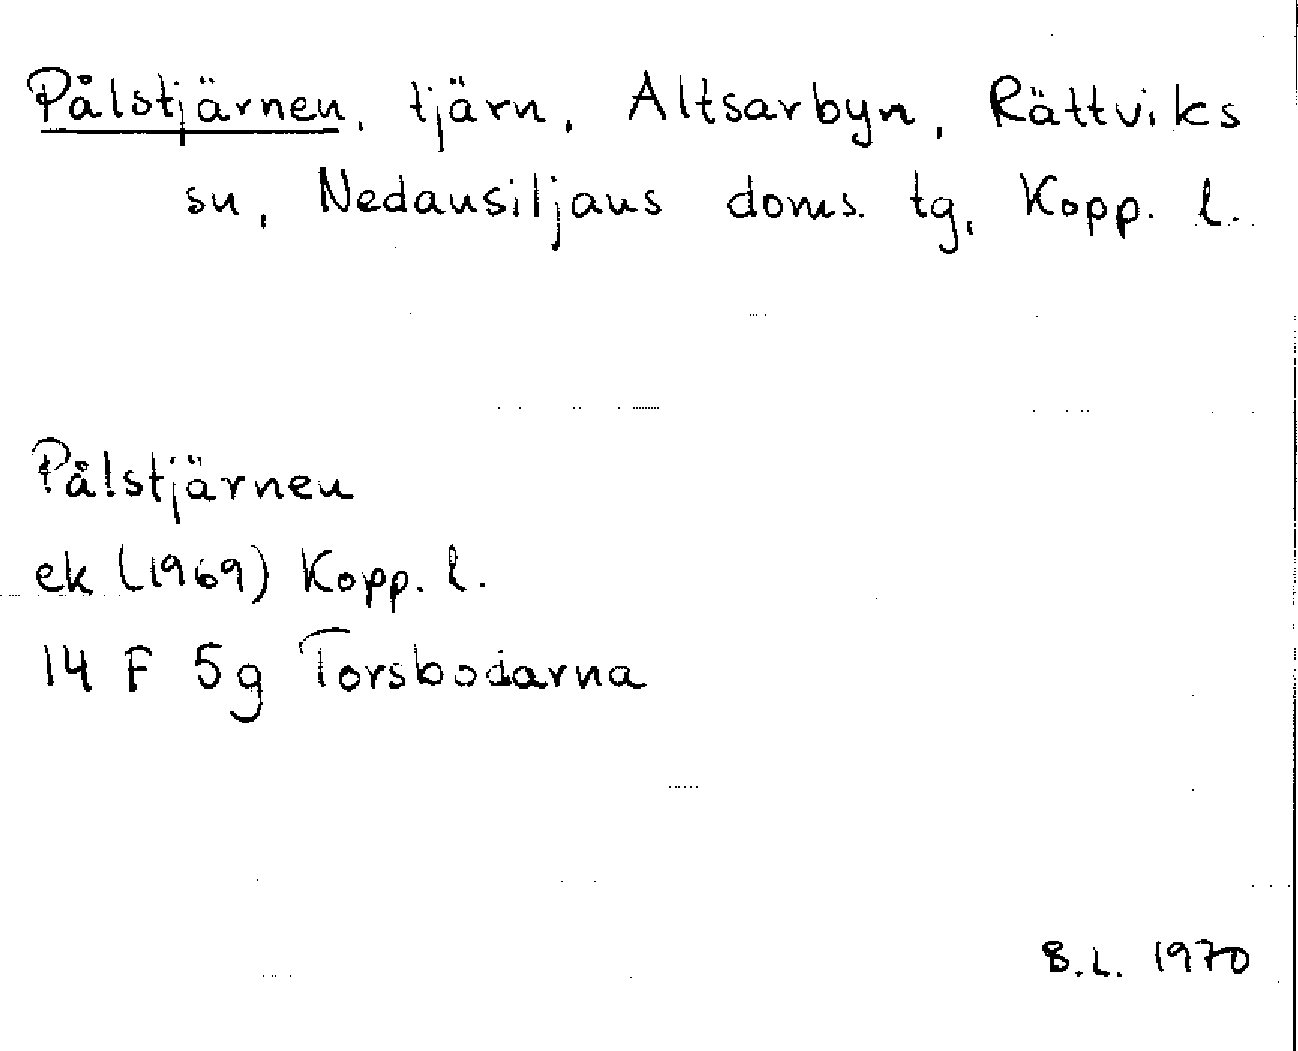 Pålstjärnen, tjärn, Altsarbyn, Rättviks
sn, Nedansiljans doms. tg, Kopp. l.
Pålstjärnen
ek (1969) Kopp. l.
14 F 5g Torsbodarna
B.L. 1970